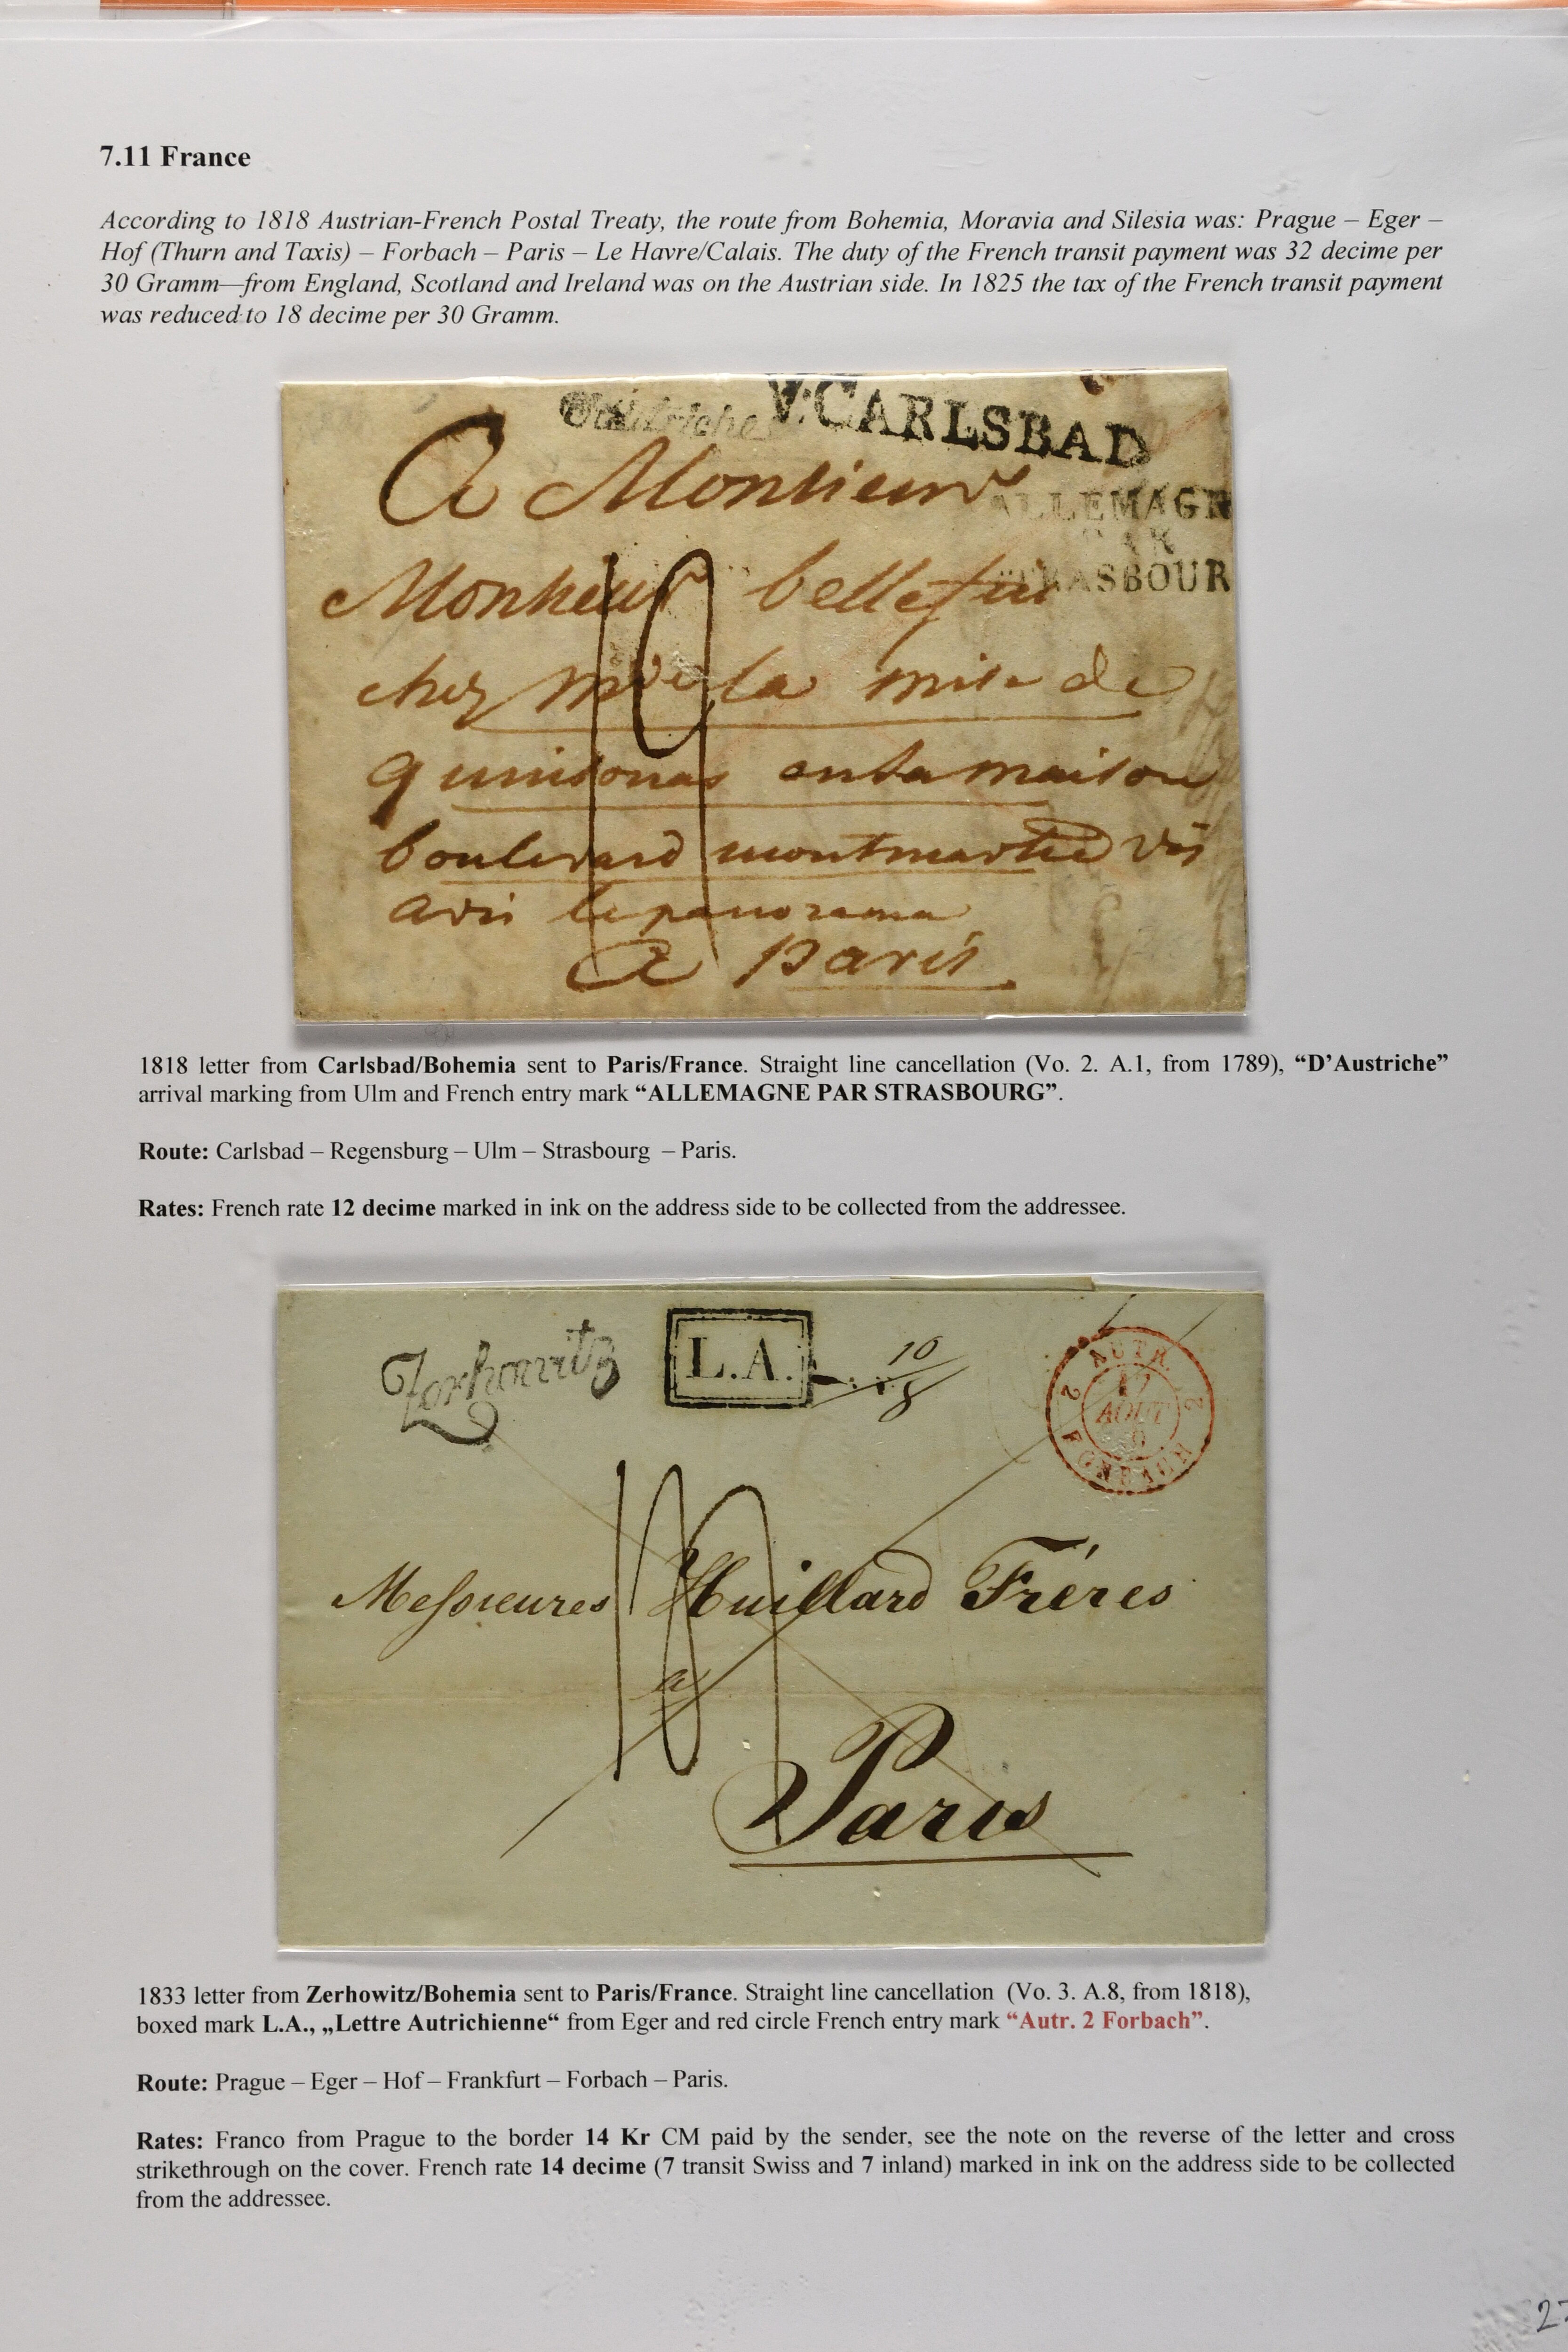 7.11 France
According to 1818 Austrian-French Postal Treaty, the route from Bohemia, Moravia and Silesia was: Prague – Eger –
Hof (Thurn and Taxis) – Forbach – Paris – Le Havre/Calais. The duty of the French transit payment was 32 decime per
30 Gramm—from England, Scotland and Ireland was on the Austrian side. In 1825 the tax of the French transit payment
was reduced to 18 decime per 30 Gramm.
V:CARLSBAD
A Monsieur
ALLEMAGN
PAR
STRASBOUR
Monsieur
chez la mise de
maison
boulevard montmartre vis
avis le panorama
a paris
1818 letter from Carlsbad/Bohemia sent to Paris/France. Straight line cancellation (Vo. 2. A.1, from 1789), “D’Austriche”
arrival marking from Ulm and French entry mark “ALLEMAGNE PAR STRASBOURG”.
Route: Carlsbad – Regensburg – Ulm – Strasbourg – Paris.
Rates: French rate 12 decime marked in ink on the address side to be collected from the addressee.
Zerhowitz
L.A.
10
8
AUTR.
2 17 2
AOUT
FORBACH
Messieures Huillard Fréres
a
Paris
1833 letter from Zerhowitz/Bohemia sent to Paris/France. Straight line cancellation (Vo. 3. A.8, from 1818),
boxed mark L.A., „Lettre Autrichienne“ from Eger and red circle French entry mark “Autr. 2 Forbach”.
Route: Prague – Eger – Hof – Frankfurt – Forbach – Paris.
Rates: Franco from Prague to the border 14 Kr CM paid by the sender, see the note on the reverse of the letter and cross
strikethrough on the cover. French rate 14 decime (7 transit Swiss and 7 inland) marked in ink on the address side to be collected
from the addressee.